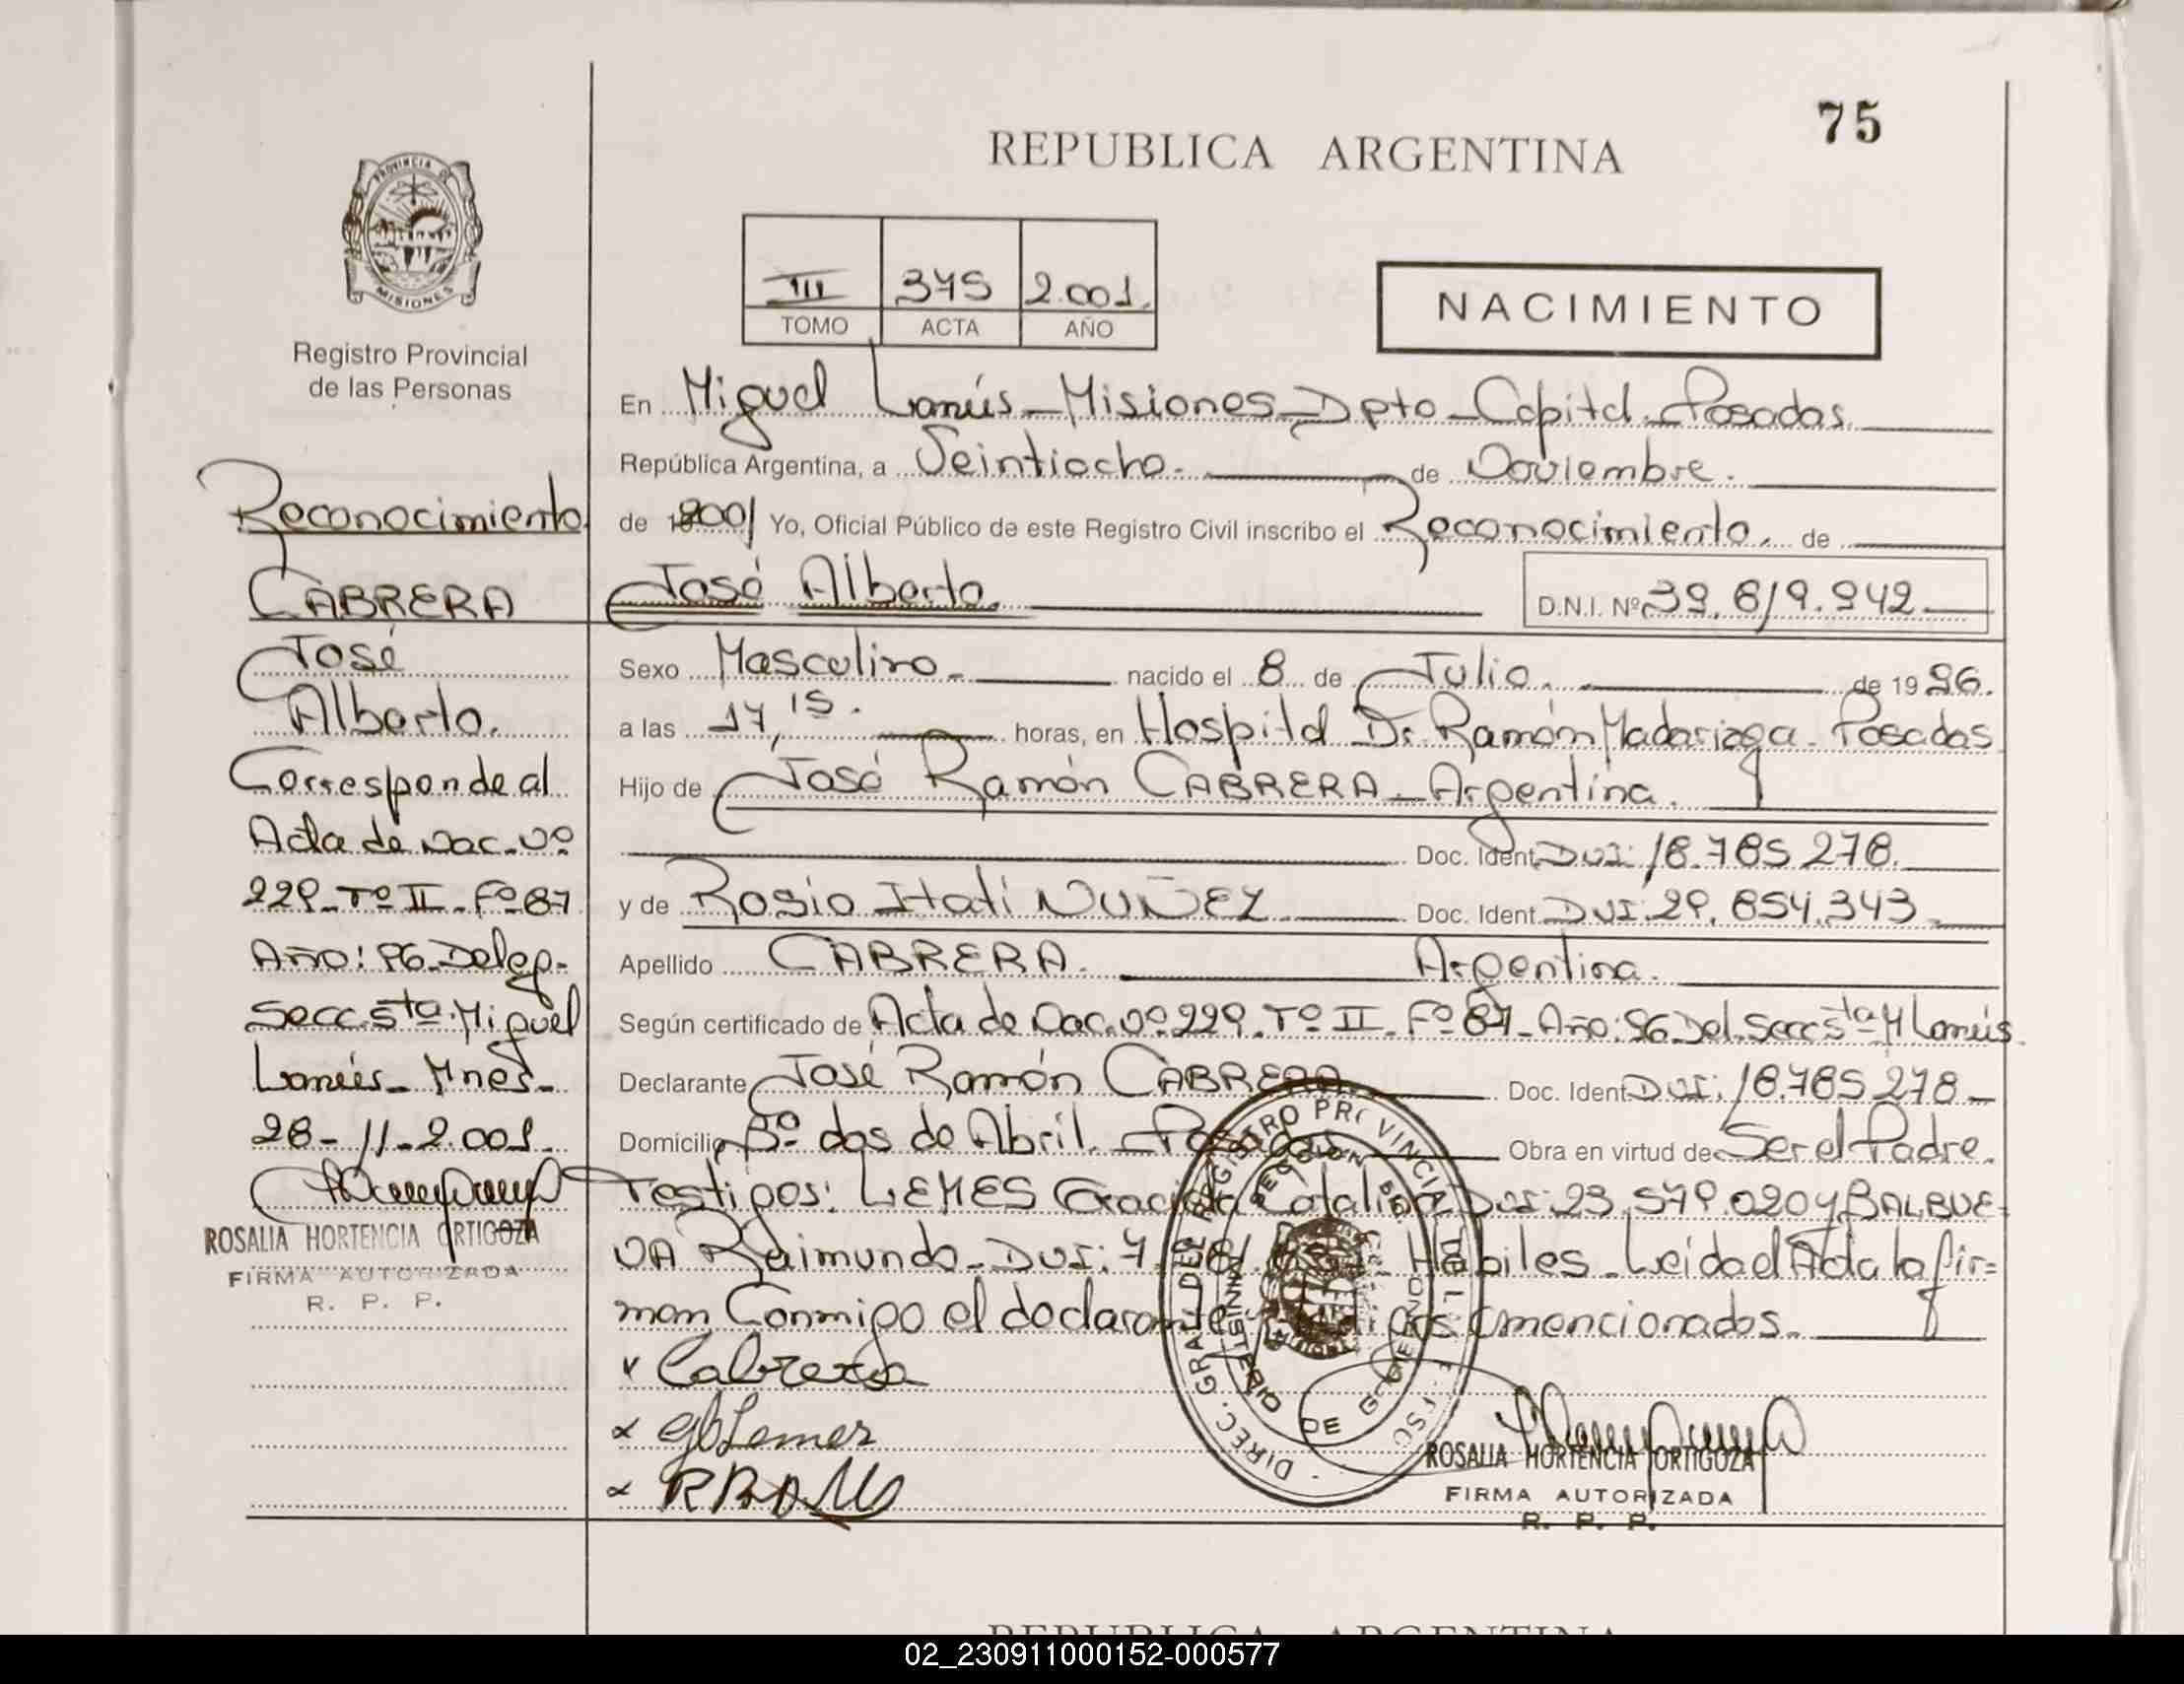 75
REPUBLICA ARGENTINA
PROVINCIA DE
MISIONES
Registro Provincial
de las Personas
III 375 2.001.
TOMO ACTA AÑO
NACIMIENTO
En Miguel Lanús - Misiones - Dpto - Capital - Posadas.
República Argentina, a Veintiocho. de Noviembre.
de 2001 Yo, Oficial Público de este Registro Civil inscribo el Reconocimiento. de
José Alberto. D.N.I. Nº 39.619.942
Sexo Masculino. nacido el 8 de Julio. de 1996.
a las 17,15. horas, en Hospital Dr. Ramón Madariaga. Posadas
Hijo de José Ramón CABRERA - Argentina.
Doc. Ident. DNI: 18.785.278.
y de Rosio Itati NUÑEZ. Doc. Ident. DNI. 29.854.343
Apellido CABRERA. Argentina.
Según certificado de Acta de Nac. Nº 229. Tº II. Fº 87 - Año: 96 Del. Secc 5ta M Lanús.
Declarante José Ramón CABRERA. Doc. Ident DNI: 18.785.278 -
Domicilio Bº dos de Abril. Posadas Obra en virtud de Ser el Padre.
Testigos: LEMES Graciela Catalina DNI: 23.579.020 y BALBUE-
NA Raimundo - DNI: Hábiles - Leida el Acta la fir=
man Conmigo el declarante mencionados.
x Cabrera
x Lemes
x
Reconocimiento
CABRERA
José
Alberto.
Corresponde al
Acta de Nac. Nº
229 - Tº II - Fº 87
Año: 96 - Deleg.
Secc. 5ta. Miguel
Lanús - Mnes -
28 - 11 - 2.001.
ROSALIA HORTENCIA ORTIGOZA
FIRMA AUTORIZADA
R. P. P.
DIREC. GRAL DEL REGISTRO PROVINCIAL DE
ROSALIA HORTENCIA ORTIGOZA
FIRMA AUTORIZADA
R. P. P.
REPUBLICA ARGENTINA
02_230911000152-000577